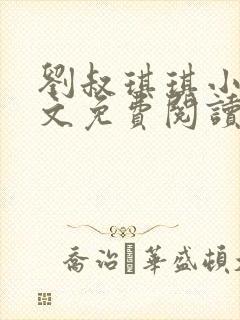 劉叔琪琪小
文免費閱讀
喬治·華盛頓